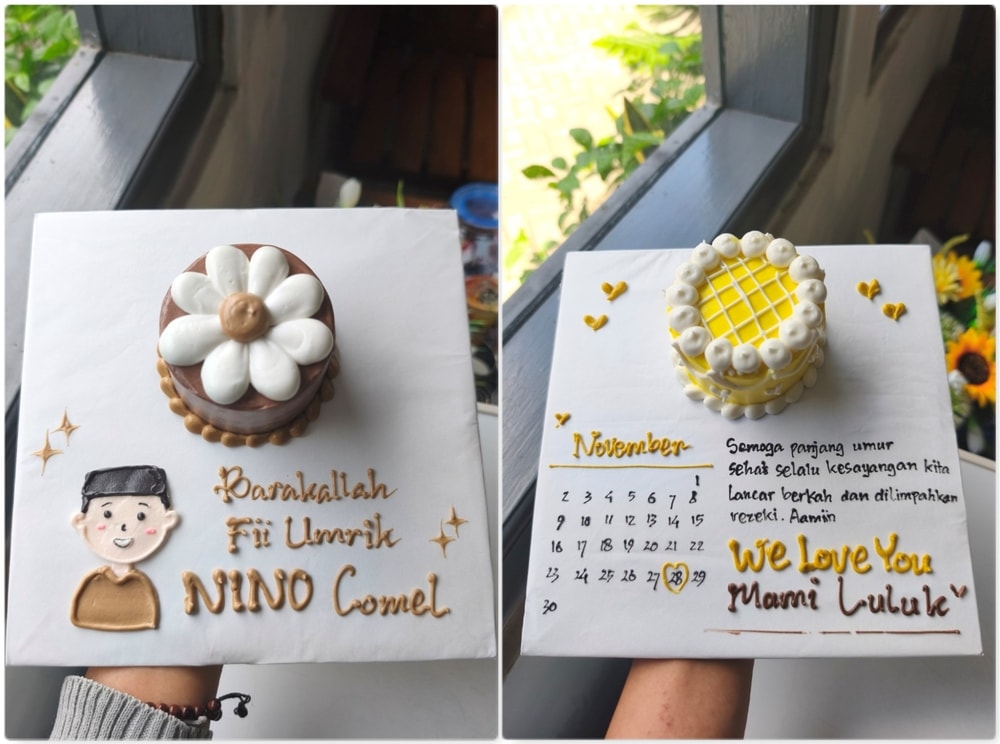 Barakallah
Fii Umrik
NINO Comel
November
1
2 3 4 5 6 7 8
9 10 11 12 13 14 15
16 17 18 19 20 21 22
23 24 25 26 27 28 29
30
Semoga panjang umur
sehat selalu kesayangan kita
Lancar berkah dan dilimpahkan
rezeki. Aamiin
We Love You
Mami Luluk